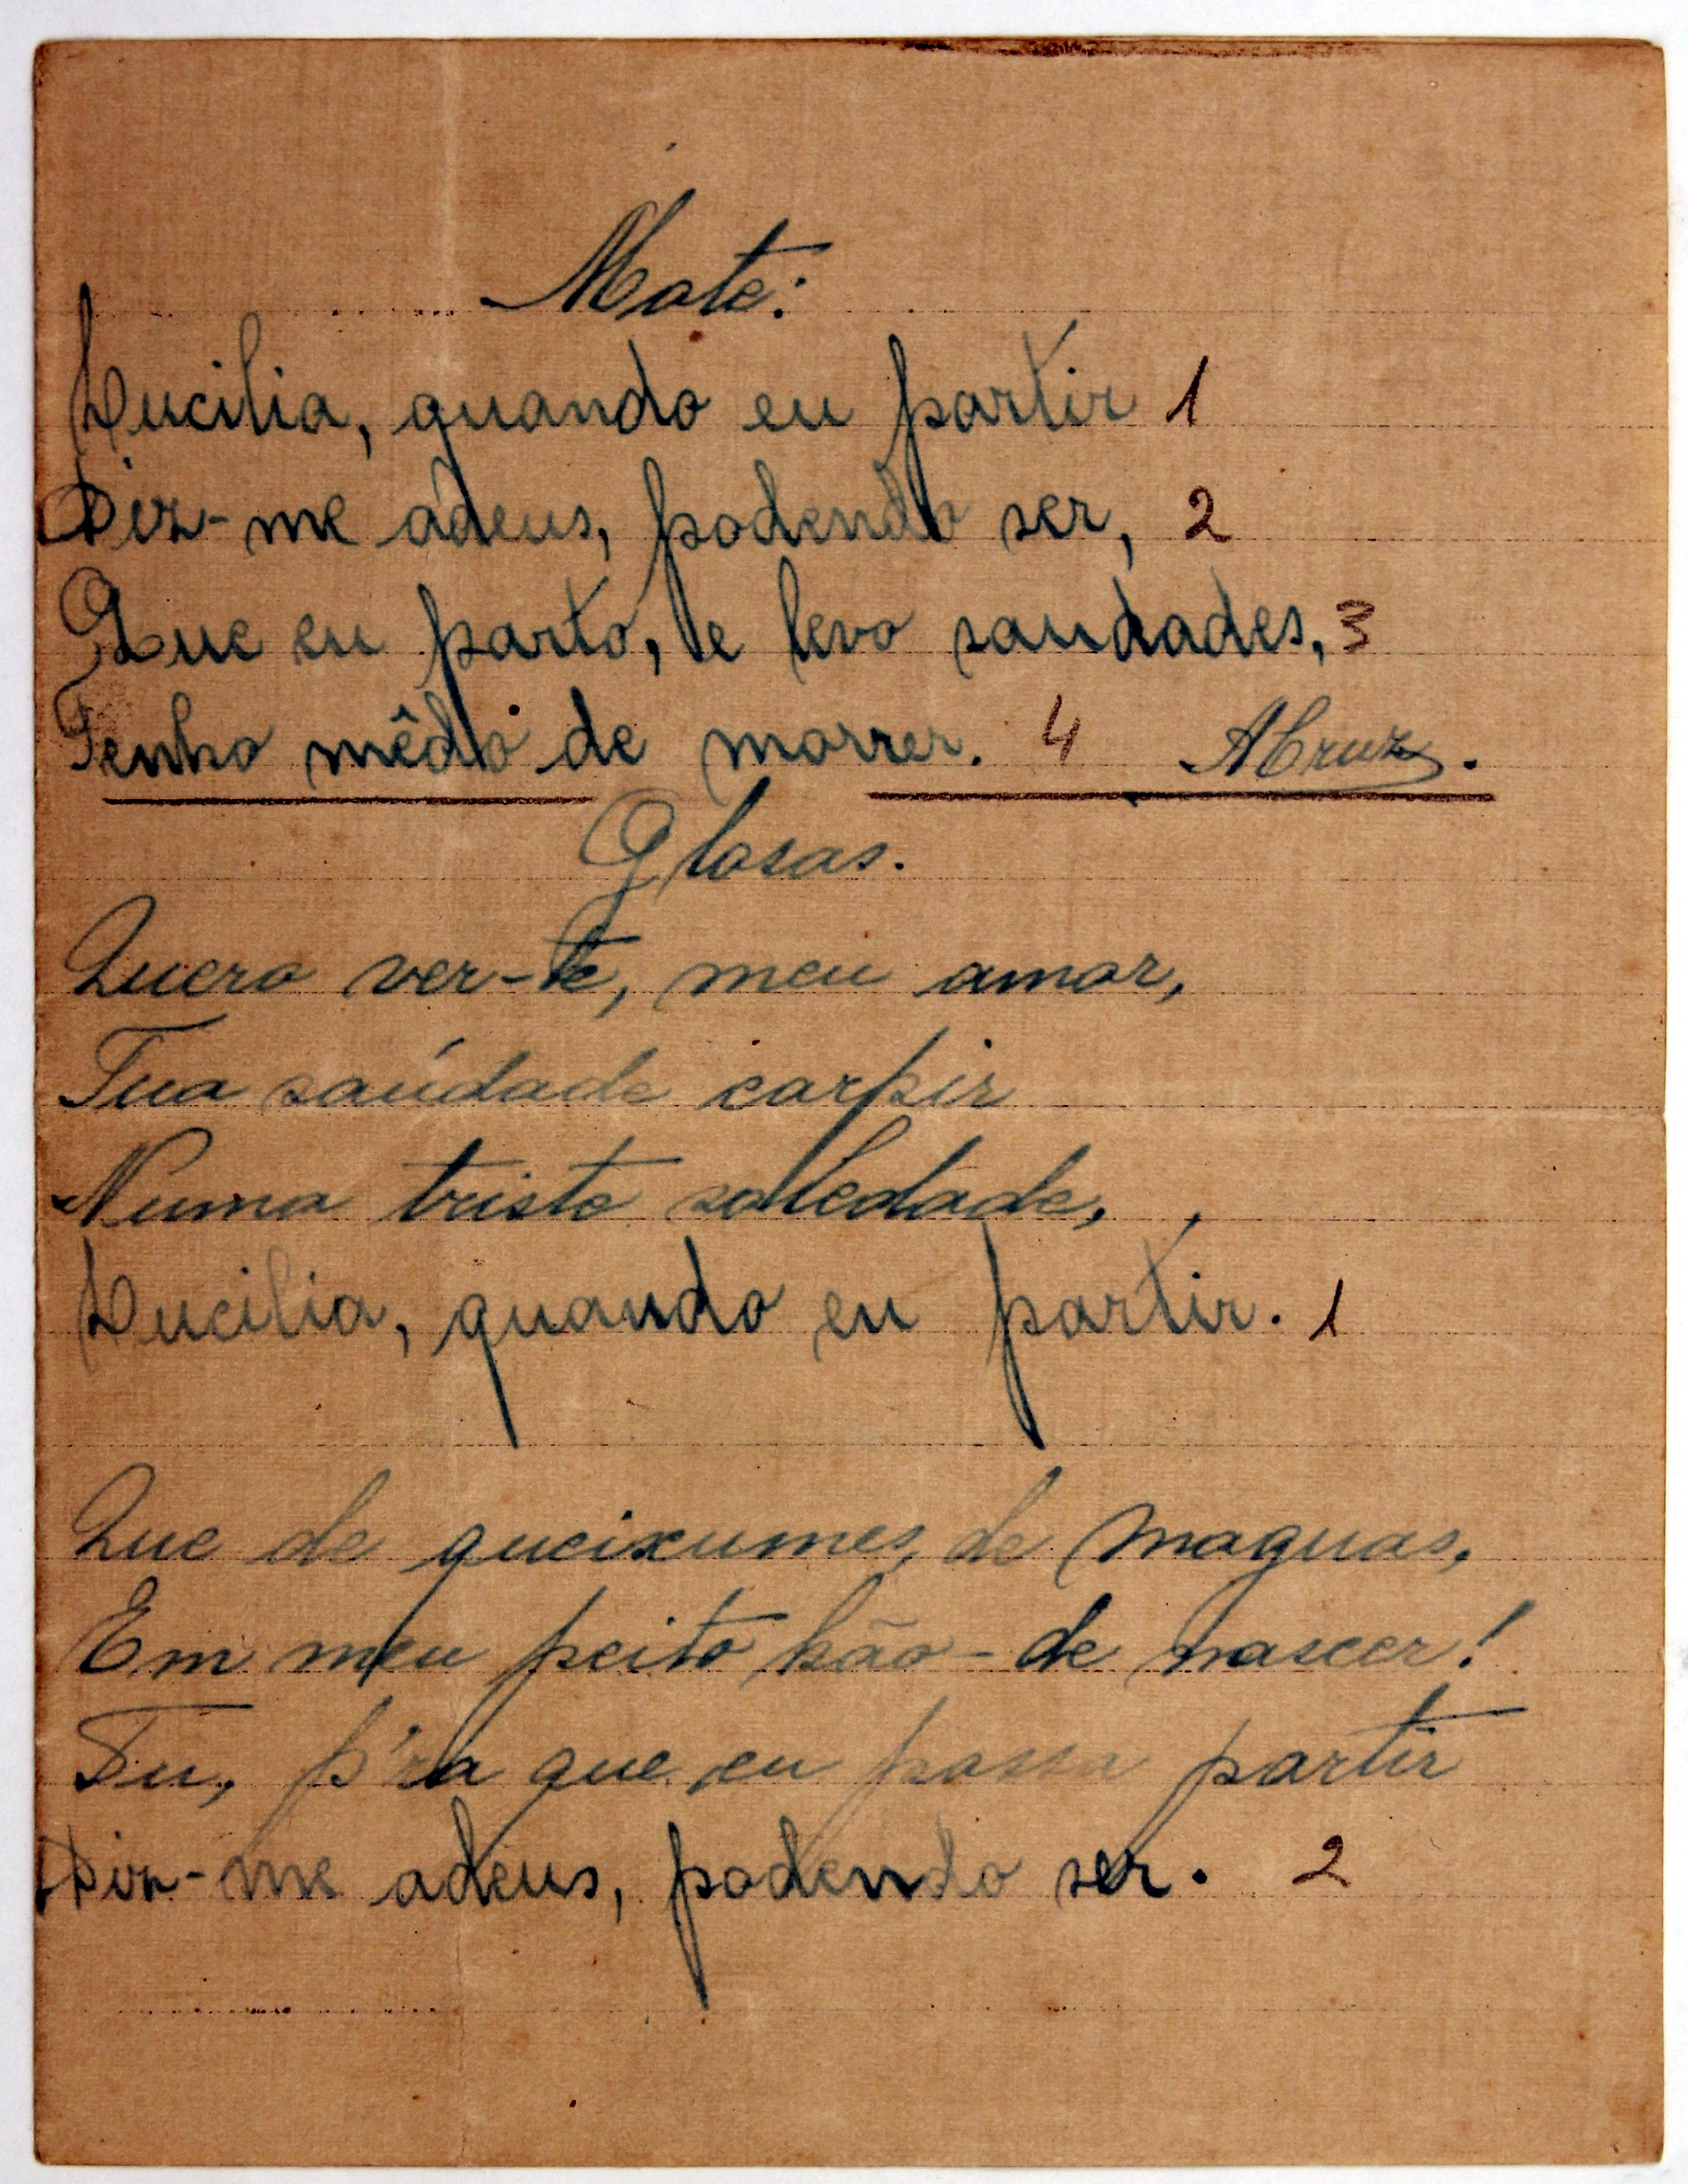 Mote:
Lucilia, quando eu partir 1
Diz-me adeus, podendo ser, 2
Que eu parto, e levo saudades, 3
Tenho mêdo de morrer. 4 ACruz.
Glosas.
Quero ver-te, meu amor,
Tua saúdade carpir
Numa triste soledade,
Lucilia, quando eu partir. 1
Que de queixumes, de maguas,
Em meu peito hão-de nascer!
Tu, p'ra que eu possa partir
Diz-me adeus, podendo ser. 2